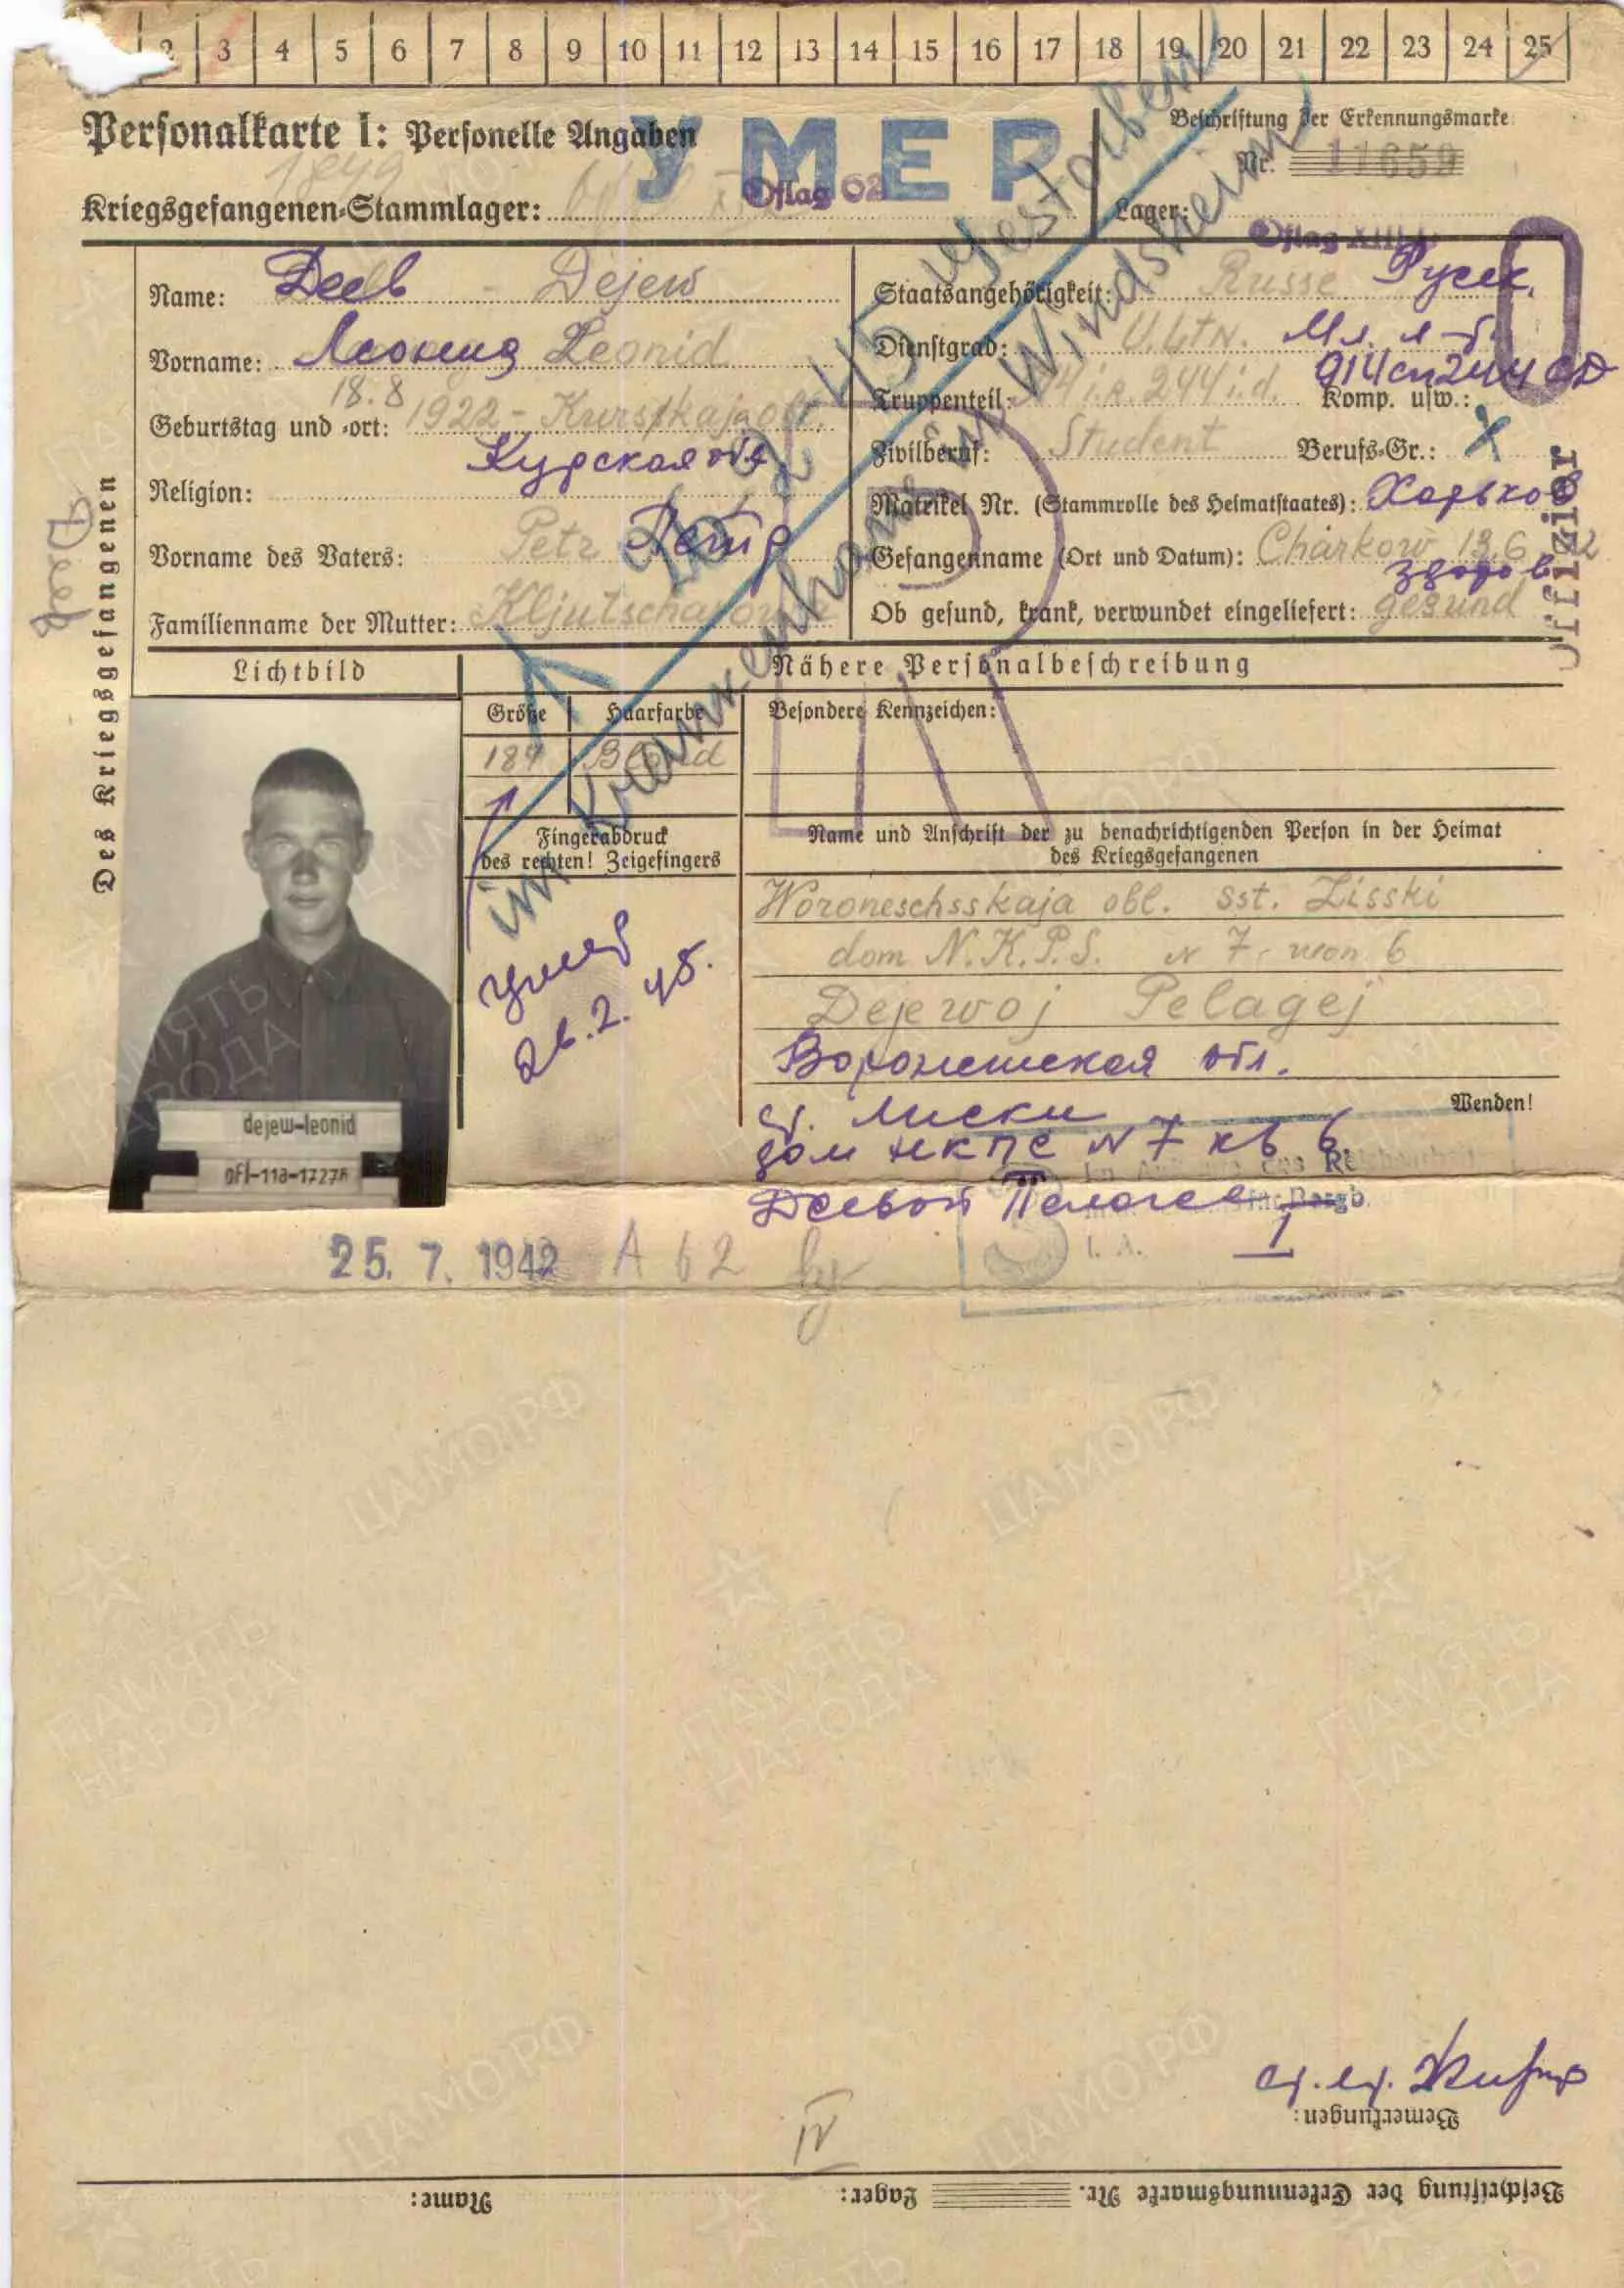 2 3 4 5 6 7 8 9 10 11 12 13 14 15 16 17 18 19 20 21 22 23 24 25
Personalkarte I: Personelle Angaben
УМЕР
Beschriftung der Erkennungsmarke
Nr. 11659
Kriegsgefangenen-Stammlager: Oflag 62
Lager: Oflag XIII
Des Kriegsgefangenen
Деев
Name: Деев - Dejew
Vorname: Леонид Leonid
Geburtstag und -ort: 18.8 1922 - Kurskaja obl.
Курская обл
Religion:
Vorname des Vaters: Petr Петр
Familienname der Mutter:
Staatsangehörigkeit: Russe Русск.
Dienstgrad: U.Ltn. Мл. л-т.
914 сп 244 СД
Truppenteil: 914 i.R. 244 i.d. Komp. usw.:
Zivilberuf: Student Berufs-Gr.: X
Matrikel Nr. (Stammrolle des Heimatstaates): Харьков
Gefangennahme (Ort und Datum): Charkow 13.6.42
здоров
Ob gesund, krank, verwundet eingeliefert: gesund
Offizier
26.2.45 gestorben
im Krankenhaus in Windsheim
Lichtbild
Nähere Personalbeschreibung
Größe Haarfarbe Besondere Kennzeichen:
187 Blond
Fingerabdruck
des rechten! Zeigefingers
умер
26.2.45.
Name und Anschrift der zu benachrichtigenden Person in der Heimat
des Kriegsgefangenen
Woroneschsskaja obl. sst. Lisski
dom N.K.P.S. N 7, won 6
Dejewoj Pelagej
Воронешская обл.
Wenden!
ст. Лиски
дом НКПС N 7 кв 6.
Деевой Пелагее
I. A.
1
dejew-leonid
ofl-11a-17276
25. 7. 1942 A 62
IV
Bemerkungen:
Beschriftung der Erkennungsmarke Nr. Lager: Name:
ПАМЯТЬ
НАРОДА
ЦАМО.РФ